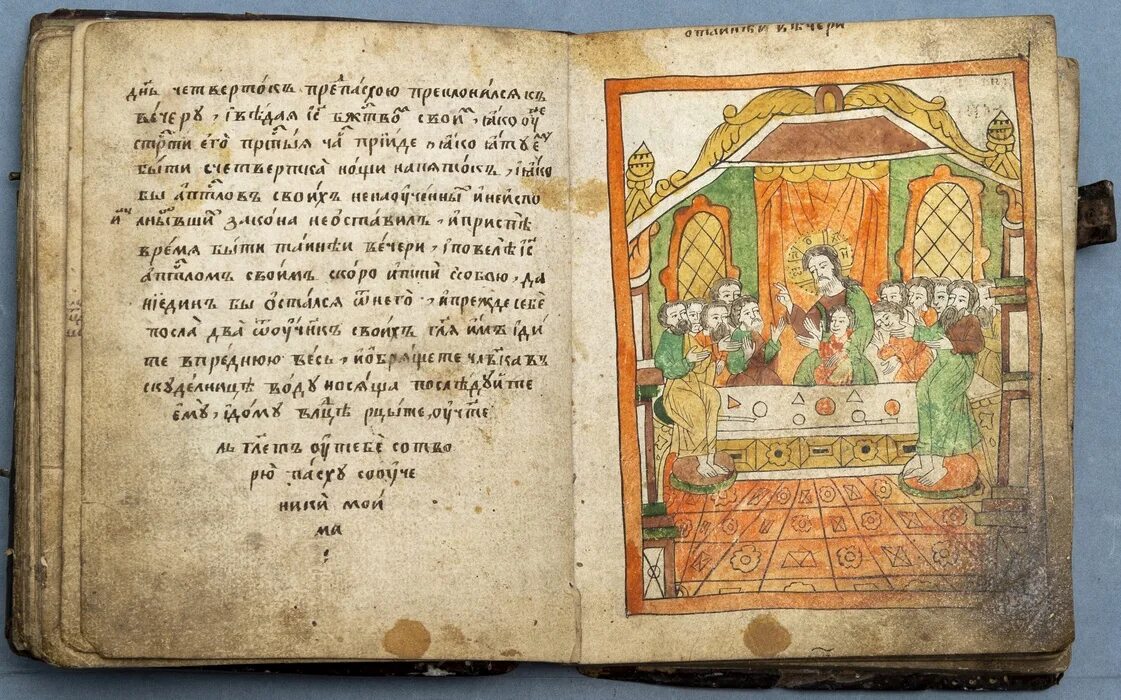 дн҃ь четвертокъ пре́пасхою преклонился къ
вечеру, і вѣдая іс҃ бж҃тво̑ свои̑, ꙗко оу́же
стр҃ти его пр҃тыя ча̑ прїи́де, ꙗко
быти с четвертка нощи на пятокъ, ꙗко
бы ап҃тлов своихъ ненаоученны̑ и неиспо
лньшви̑ закона не оставил, и приспѣ
время быти таинѣи вечери, і повелѣ іс҃
ап҃тломъ своимъ скоро ити̑ с собою, да
ниединъ бы ѻстался ѿ него, и прежде себе
посла два ѿ оучн҃икъ своихъ гл҃я имъ іди
те в преднюю весь, и обрящете чл҃вка въ
скуделницѣ воду носяща послѣдуите
ему, і дому вл҃цѣ рцыте, оучт҃е
ль гл҃етъ оу тебе сотво
рю̑ пасху со оуче
ники̑ мои
ма
о таинѣи вечери